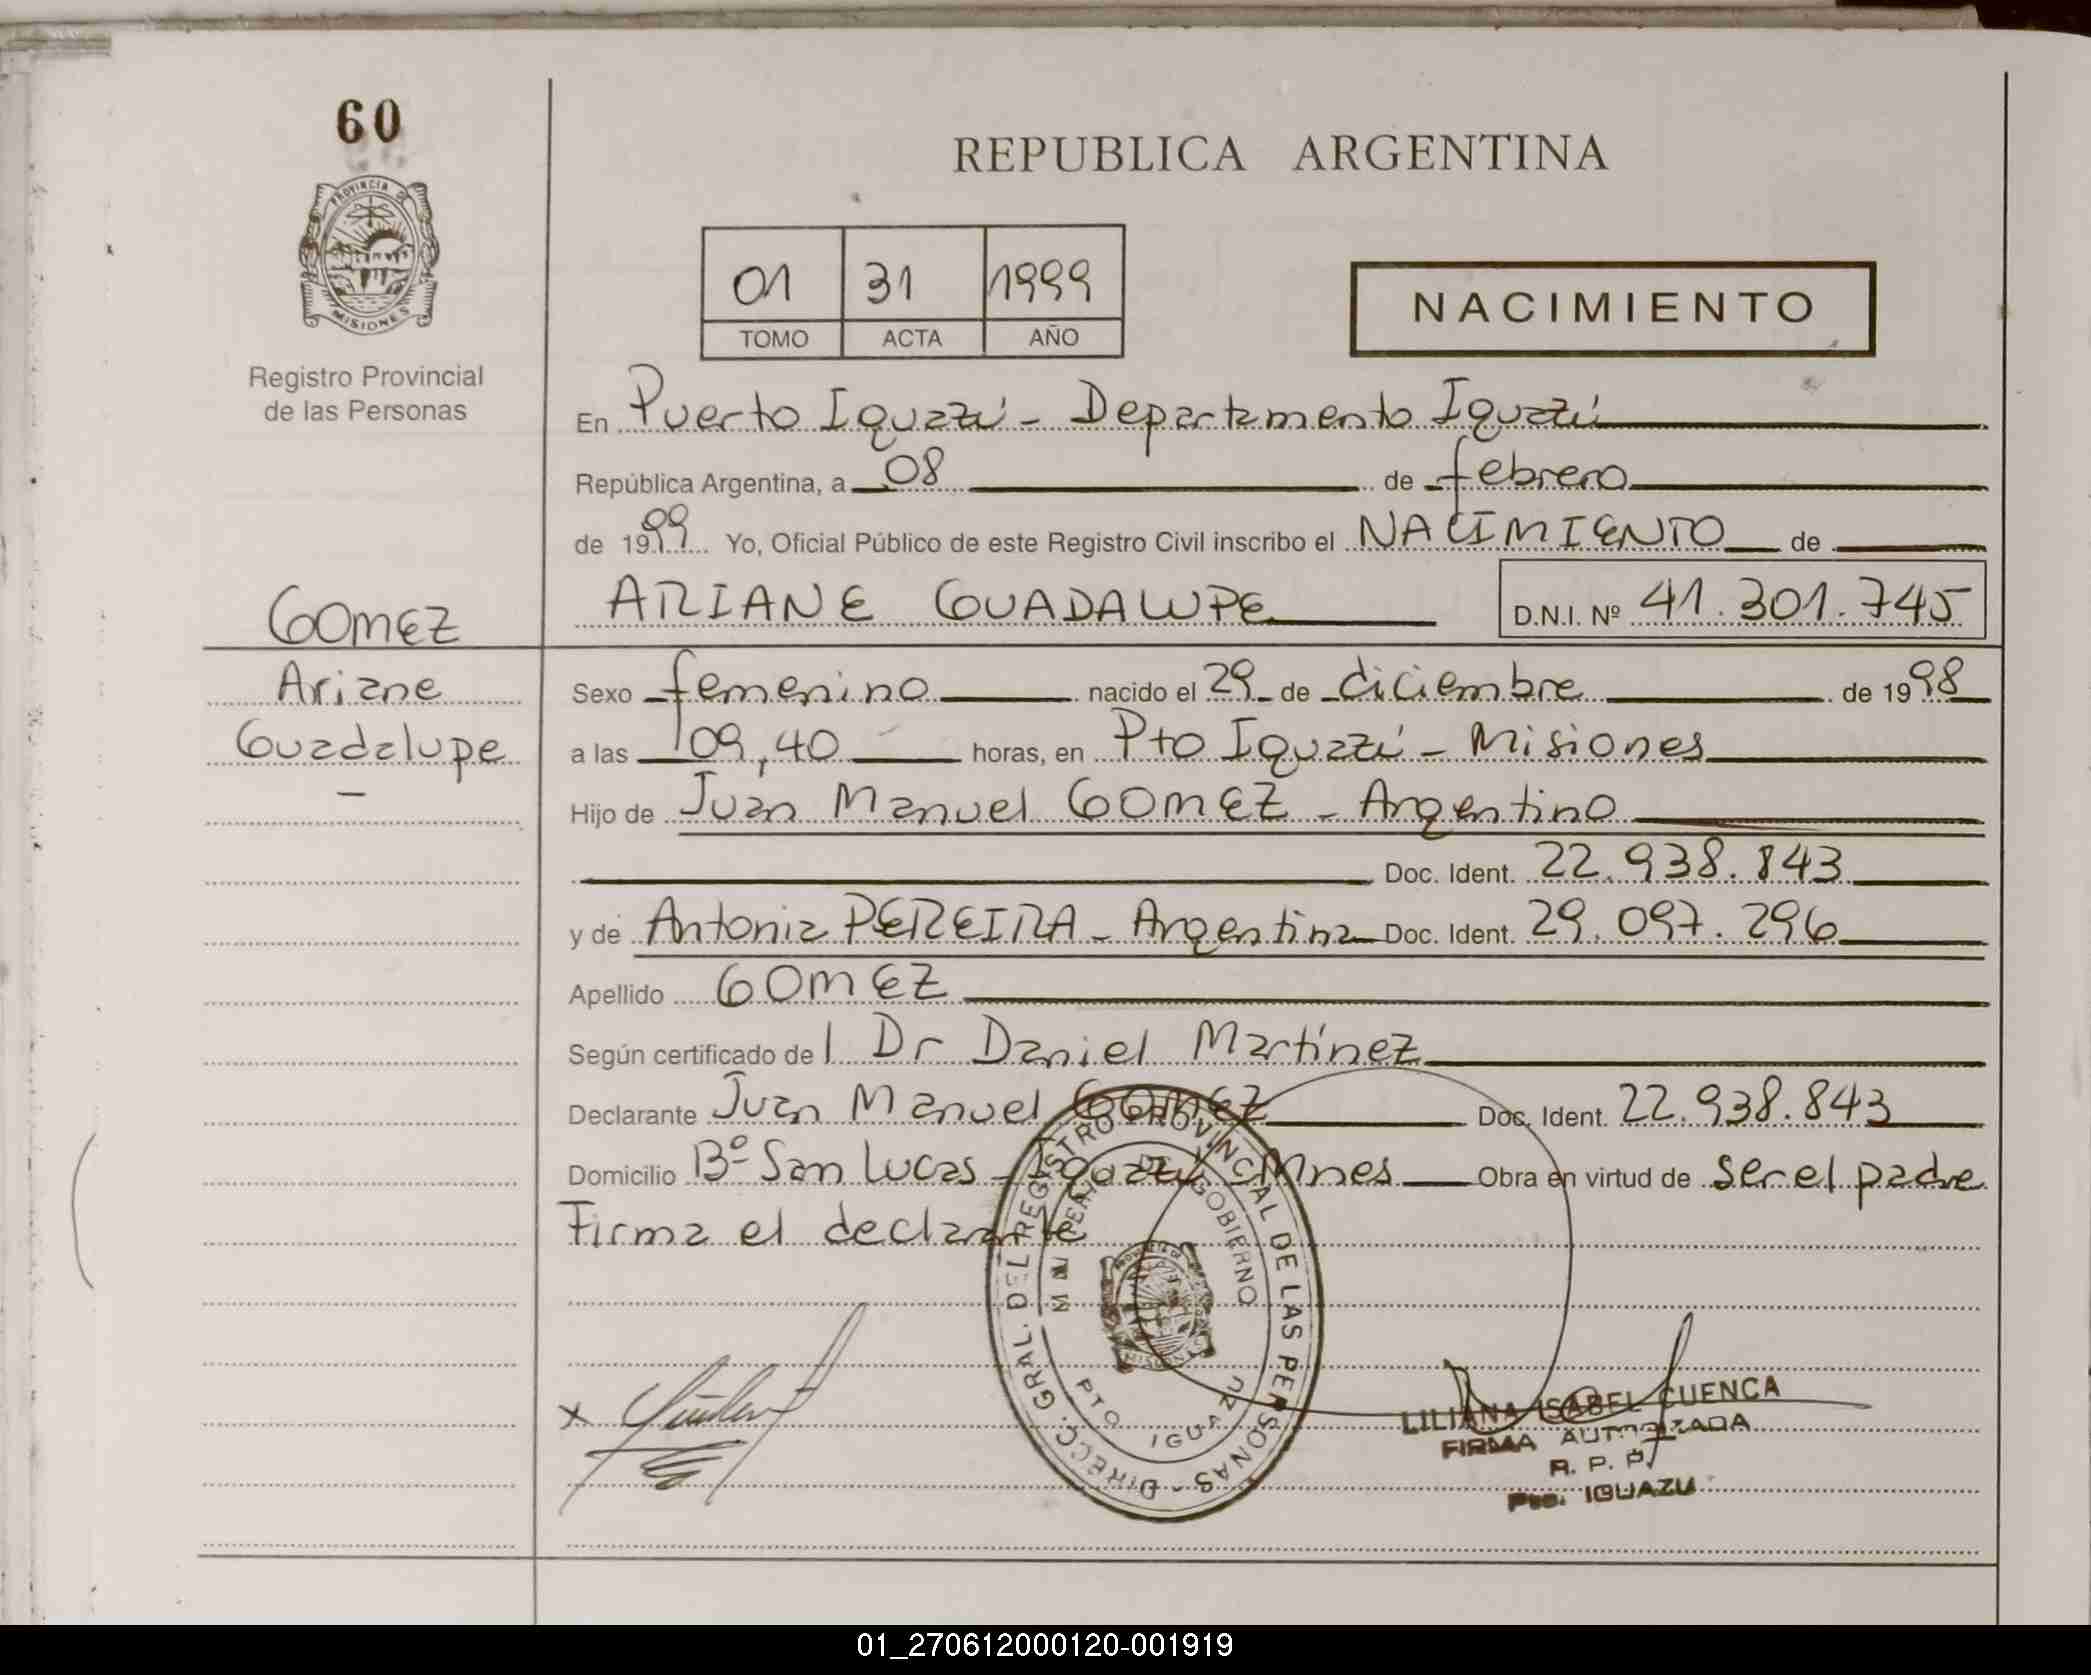 60
PROVINCIA
MISIONES
Registro Provincial
de las Personas
REPUBLICA ARGENTINA
01 31 1999
TOMO ACTA AÑO
NACIMIENTO
En Puerto Iguazú - Departamento Iguazú
República Argentina, a 08 de febrero
de 1999 Yo, Oficial Público de este Registro Civil inscribo el NACIMIENTO de
GOMEZ ARIANE GUADALUPE D.N.I. Nº 41.301.745
Ariane Sexo femenino nacido el 29 de diciembre de 1998
Guadalupe a las 09,40 horas, en Pto Iguazú - Misiones
Hijo de Juan Manuel GOMEZ - Argentino
Doc. Ident. 22.938.843
y de Antonia PEREIRA - Argentina Doc. Ident. 29.097.296
Apellido GOMEZ
Según certificado del Dr Daniel Martínez
Declarante Juan Manuel GOMEZ Doc. Ident. 22.938.843
Domicilio Bº San Lucas - Iguazú Mnes Obra en virtud de ser el padre
Firma el declarante
DIRECC. GRAL. DEL REGISTRO PROVINCIAL DE LAS PERSONAS -
DE GOBIERNO
PTO IGUAZU
x
LILIANA ISABEL CUENCA
FIRMA AUTORIZADA
R. P. P.
Pto. IGUAZU
01_270612000120-001919